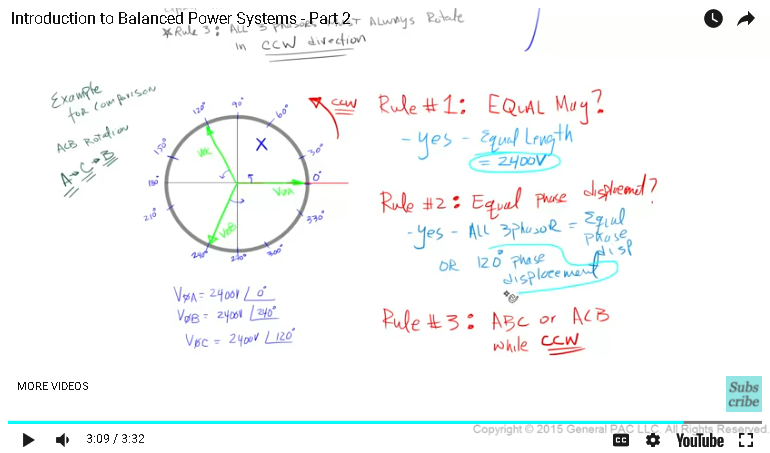 Introduction to Balanced Power Systems - Part 2
*Rule 3: ALL 3 phasors MUST Always Rotate
in CCW direction
Example
for Comparison
ACB Rotation
A→C→B
90°
120°
60°
150°
30°
180°
0°
210°
330°
240°
270°
300°
VøA
VøB
X
CCW
Rule #1: EQUAL Mag?
- yes - Equal Length
= 2400V
Rule #2: Equal phase displacment?
- yes - ALL 3 phasoR = Equal
phase
disp
OR 120° phase
displacement
Rule #3: ABC or ACB
while CCW
VøA = 2400V ∠0°
VøB = 2400V ∠240°
VøC = 2400V ∠120°
MORE VIDEOS
Subs
cribe
Copyright © 2015 General PAC LLC. All Rights Reserved.
3:09 / 3:32
CC
YouTube